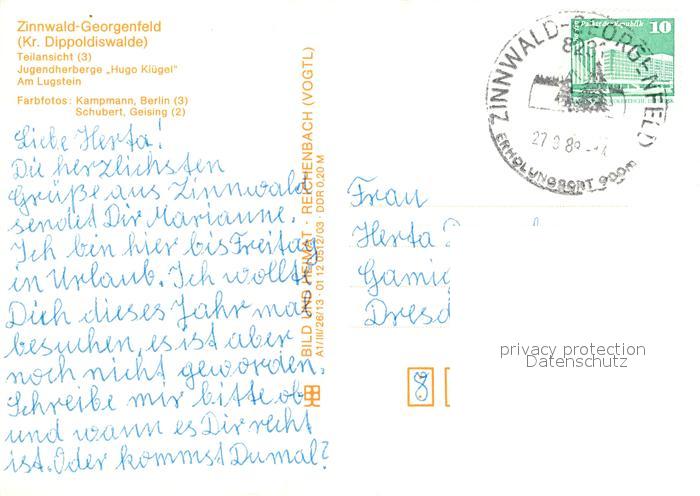 Zinnwald-Georgenfeld
(Kr. Dippoldiswalde)
Teilansicht (3)
Jugendherberge „Hugo Klügel"
Am Lugstein
Farbfotos: Kampmann, Berlin (3)
Schubert, Geising (2)
Liebe Herta!
Die herzlichsten
Grüße aus Zinnwald
sendet Dir Marianne.
Ich bin hier bis Freitag
in Urlaub. Ich wollte
Dich dieses Jahr mal
besuchen, es ist aber
noch nicht geworden.
Schreibe mir bitte ob
und wann es Dir recht
ist. Oder kommst Du mal?
BILD UND HEIMAT · REICHENBACH (VOGTL)
A1/III/26/13 · 01 12 0512/03 · DDR 0,20 M
10
ZINNWALD-GEORGENFELD
ERHOLUNGSORT 900m
Frau
Herta
Gamig
Dresd
8
privacy protection
Datenschutz